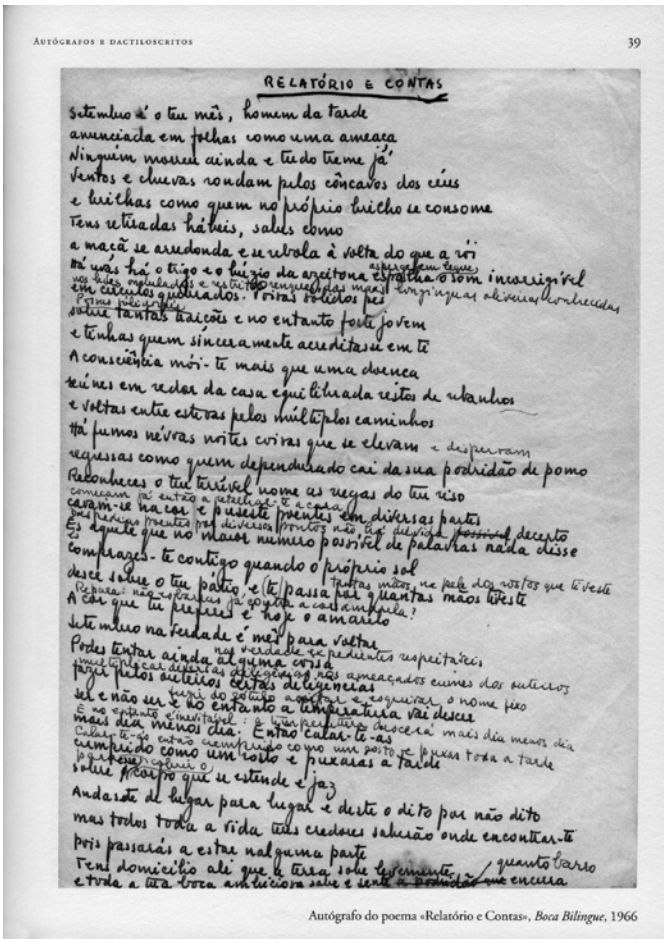 AUTÓGRAFOS E DACTILOSCRITOS
39
RELATÓRIO E CONTAS
Setembro é o teu mês, homem da tarde
anunciada em folhas como uma ameaça
Ninguém morreu ainda e tudo treme já
Ventos e chuvas rondam pelos côncavos dos céus
e brilhas como quem no próprio brilho se consome
Tens retiradas hábeis, sabes como
a maçã se arredonda e se rebola à volta do que a rói
Há uvas há o trigo e o búzio da azeitona espalha o som incorrigível
asperge em leque
nos ondulados e restritos das mais longínquas oliveiras conhecidas
em círculos quebrados. Poisas sólidos pés
Poisas
sobre tantas traições e no entanto foste jovem
e tinhas quem sinceramente acreditasse em ti
A consciência mói-te mais que uma doença
reúnes em redor da casa equilibrada restos de rebanhos
e voltas entre estevas pelos múltiplos caminhos
Há fumos névoas noites coisas que se elevam e dispersam
regressas como quem dependurado cai da sua podridão de pomo
Reconheces o teu terrível nome as rugas do teu riso
começam já então a retalhar-te a cara
cavam-se na cor e puseste poentes em diversas partes
poentes por diversos pontos não há dúvida possível decerto
És aquele que no maior número possível de palavras nada disse
comprazes-te contigo quando o próprio sol
desce sobre o teu pátio e (te) passa por quantas mãos tiveste
tantas mãos na pele dos rostos que tiveste
Repara: não já contra a cor amarela?
A cor que tu preferes é hoje o amarelo
Setembro na verdade é mês para voltar
Podes tentar ainda alguma coisa
na verdade expedientes respeitáveis
multiplicar diversas diligências nos ameaçados cumes dos outeiros
fazer pelos outeiros certas deligências
ser e não ser e no entanto a temperatura vai descer
e esquivar o nome fixo
E no entanto é inevitável: a temperatura descerá mais dia menos dia
mais dia menos dia. Então calar-te-ás
Calar-te-ás então cumprido como um rosto e puxas toda a tarde
cumprido como um rosto e puxarás a tarde
sobre o corpo que se estende e jaz
Andaste de lugar para lugar e deste o dito por não dito
mas todos toda a vida teus credores saberão onde encontrar-te
pois passarás a estar nalguma parte
Tens domicílio ali que a terra sobe levemente
quanto barro
e toda a tua boca ambiciosa sabe e sente a podridão que encerra
Autógrafo do poema «Relatório e Contas», Boca Bilingue, 1966